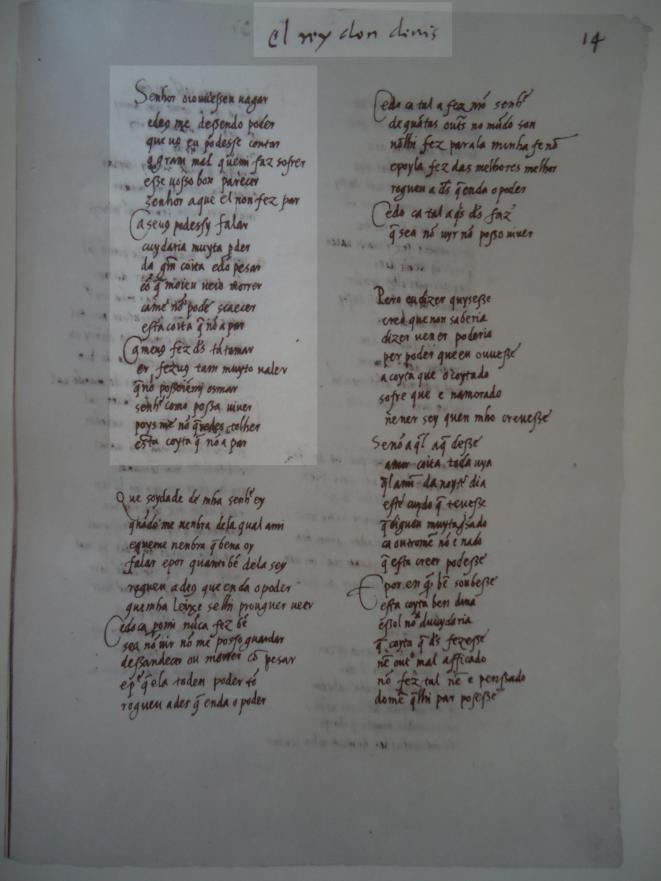 el rey don denis
14
Senhor oiouuessen uagar
edeꝯ me dessendo poder
que uꝯ eu podesse contar
q̄ gram mal quemi faz sofrer
esse uosso bon parecer
senhor aque el non fez par
Ca seuꝯ podessy falar
cuydaria muyta
da coita pesar
uero morrer
came nō pode scaecer
esta coita q̄ nō a par
Ca meuꝯ fez dꝯ
er fezuꝯ tam muyto ualer
q̄ nō osmar
senhʳ como possa uiuer
poys me nō tolher
esta coyta q̄ nō a par
Que soydade de mha senhʳ ey
quādo me nenbra dela qual
eqͥeme nenbra q̄ bena oy
falar epor quanto bē dela sey
rogueu a deꝯ que end a o poder
quemha leixe selhi prouguer ueer
Cedo ca pomi nūca fez bē
sea nō uir nō me posso guardar
dessandecer ou morrer cō pesar
ela toden poder tē
rogueu a des q̄ end a o poder
Cedo ca tal a fez nrō senhʳ
de quātas no mūdo son
nōlhi fez par ala minha fe nō
epoyla fez das melhores melhor
rogueu a dꝯ q̄ end a o poder
Cedo ca tal a dꝯ faz
q̄ sea nō uyr nō posso uiuer
Pero eu dizer quysesse
creo que non saberia
dizer nen er poderia
per poder que eu ouuesse
a coyta que o coytado
sofre que e namorado
nen er sey quen mho creuesse
Senō aq̄l aq̄ desse
amor coita toda uya
da noyte dia
este cuydo q̄ teuesse
q̄ diguen
ca outrome nō e nado
q̄ esta creer podesse
E por en bē soubesse
esta coyta ben diria
e sol nō duuydaria
q̄ coyta q̄ dꝯ fezesse
nē out mal afficado
nō fez tal nē e penssado
domē q̄lhi par posesse